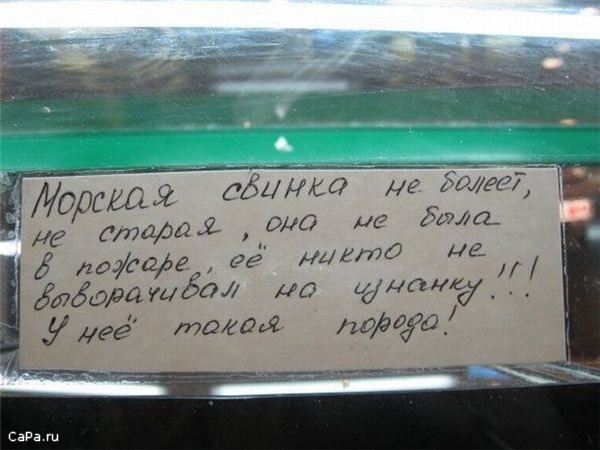 Морская свинка не болеет,
не старая, она не была
в пожаре, её никто не
выворачивал на изнанку!!!
У неё такая порода!
CaPa.ru